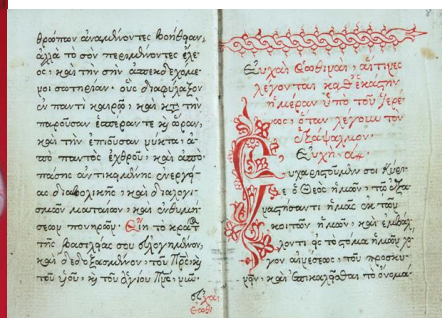 θρώπων ἀναμένοντες βοήθειαν,
ἀλλὰ τὸ σὸν περιμένοντες ἔλε
ος, καὶ τὴν σὴν ἀπεκδεχόμε
νοι σωτηρίαν· οὓς διαφύλαξον
ἐν παντὶ καιρῷ, καὶ κατὰ τὴν
παροῦσαν ἑσπέραν τε καὶ ὥραν,
καὶ τὴν ἐπιοῦσαν νύκτα· ἀ
πὸ παντὸς ἐχθροῦ, καὶ ἀπὸ
πάσης ἀντικειμένης ἐνεργεί
ας διαβολικῆς, καὶ διαλογι
σμῶν ματαίων, καὶ ἐνθυμή
σεων πονηρῶν. Εἴη τὸ κράτος
τῆς βασιλείας σου εὐλογημένον,
καὶ δεδοξασμένον, τοῦ Πρς, καὶ
τοῦ υἱοῦ, καὶ τοῦ ἁγίου Πνς, νῦν
εὐχαὶ
ἑωθι
Εὐχαὶ Ἑωθιναὶ, αἵτινες
λέγονται καθ' ἑκάστην
ἡμέραν ὑπὸ τοῦ ἱερέ
ως, ὅταν λέγουν τὸν
ἑξάψαλμον.
Εὐχὴ αη.
Εὐχαριστοῦμέν σοι Κύρι
ε ὁ Θεὸς ἡμῶν, τῷ ἐξα
ναστήσαντι ἡμᾶς ἐκ τῶν
κοιτῶν ἡμῶν, καὶ ἐμβα
λόντι εἰς τὸ στόμα ἡμῶν λό
γον αἰνέσεως, τοῦ προσκυ
νεῖν, καὶ ἐπικαλεῖσθαι τὸ ὄνομά